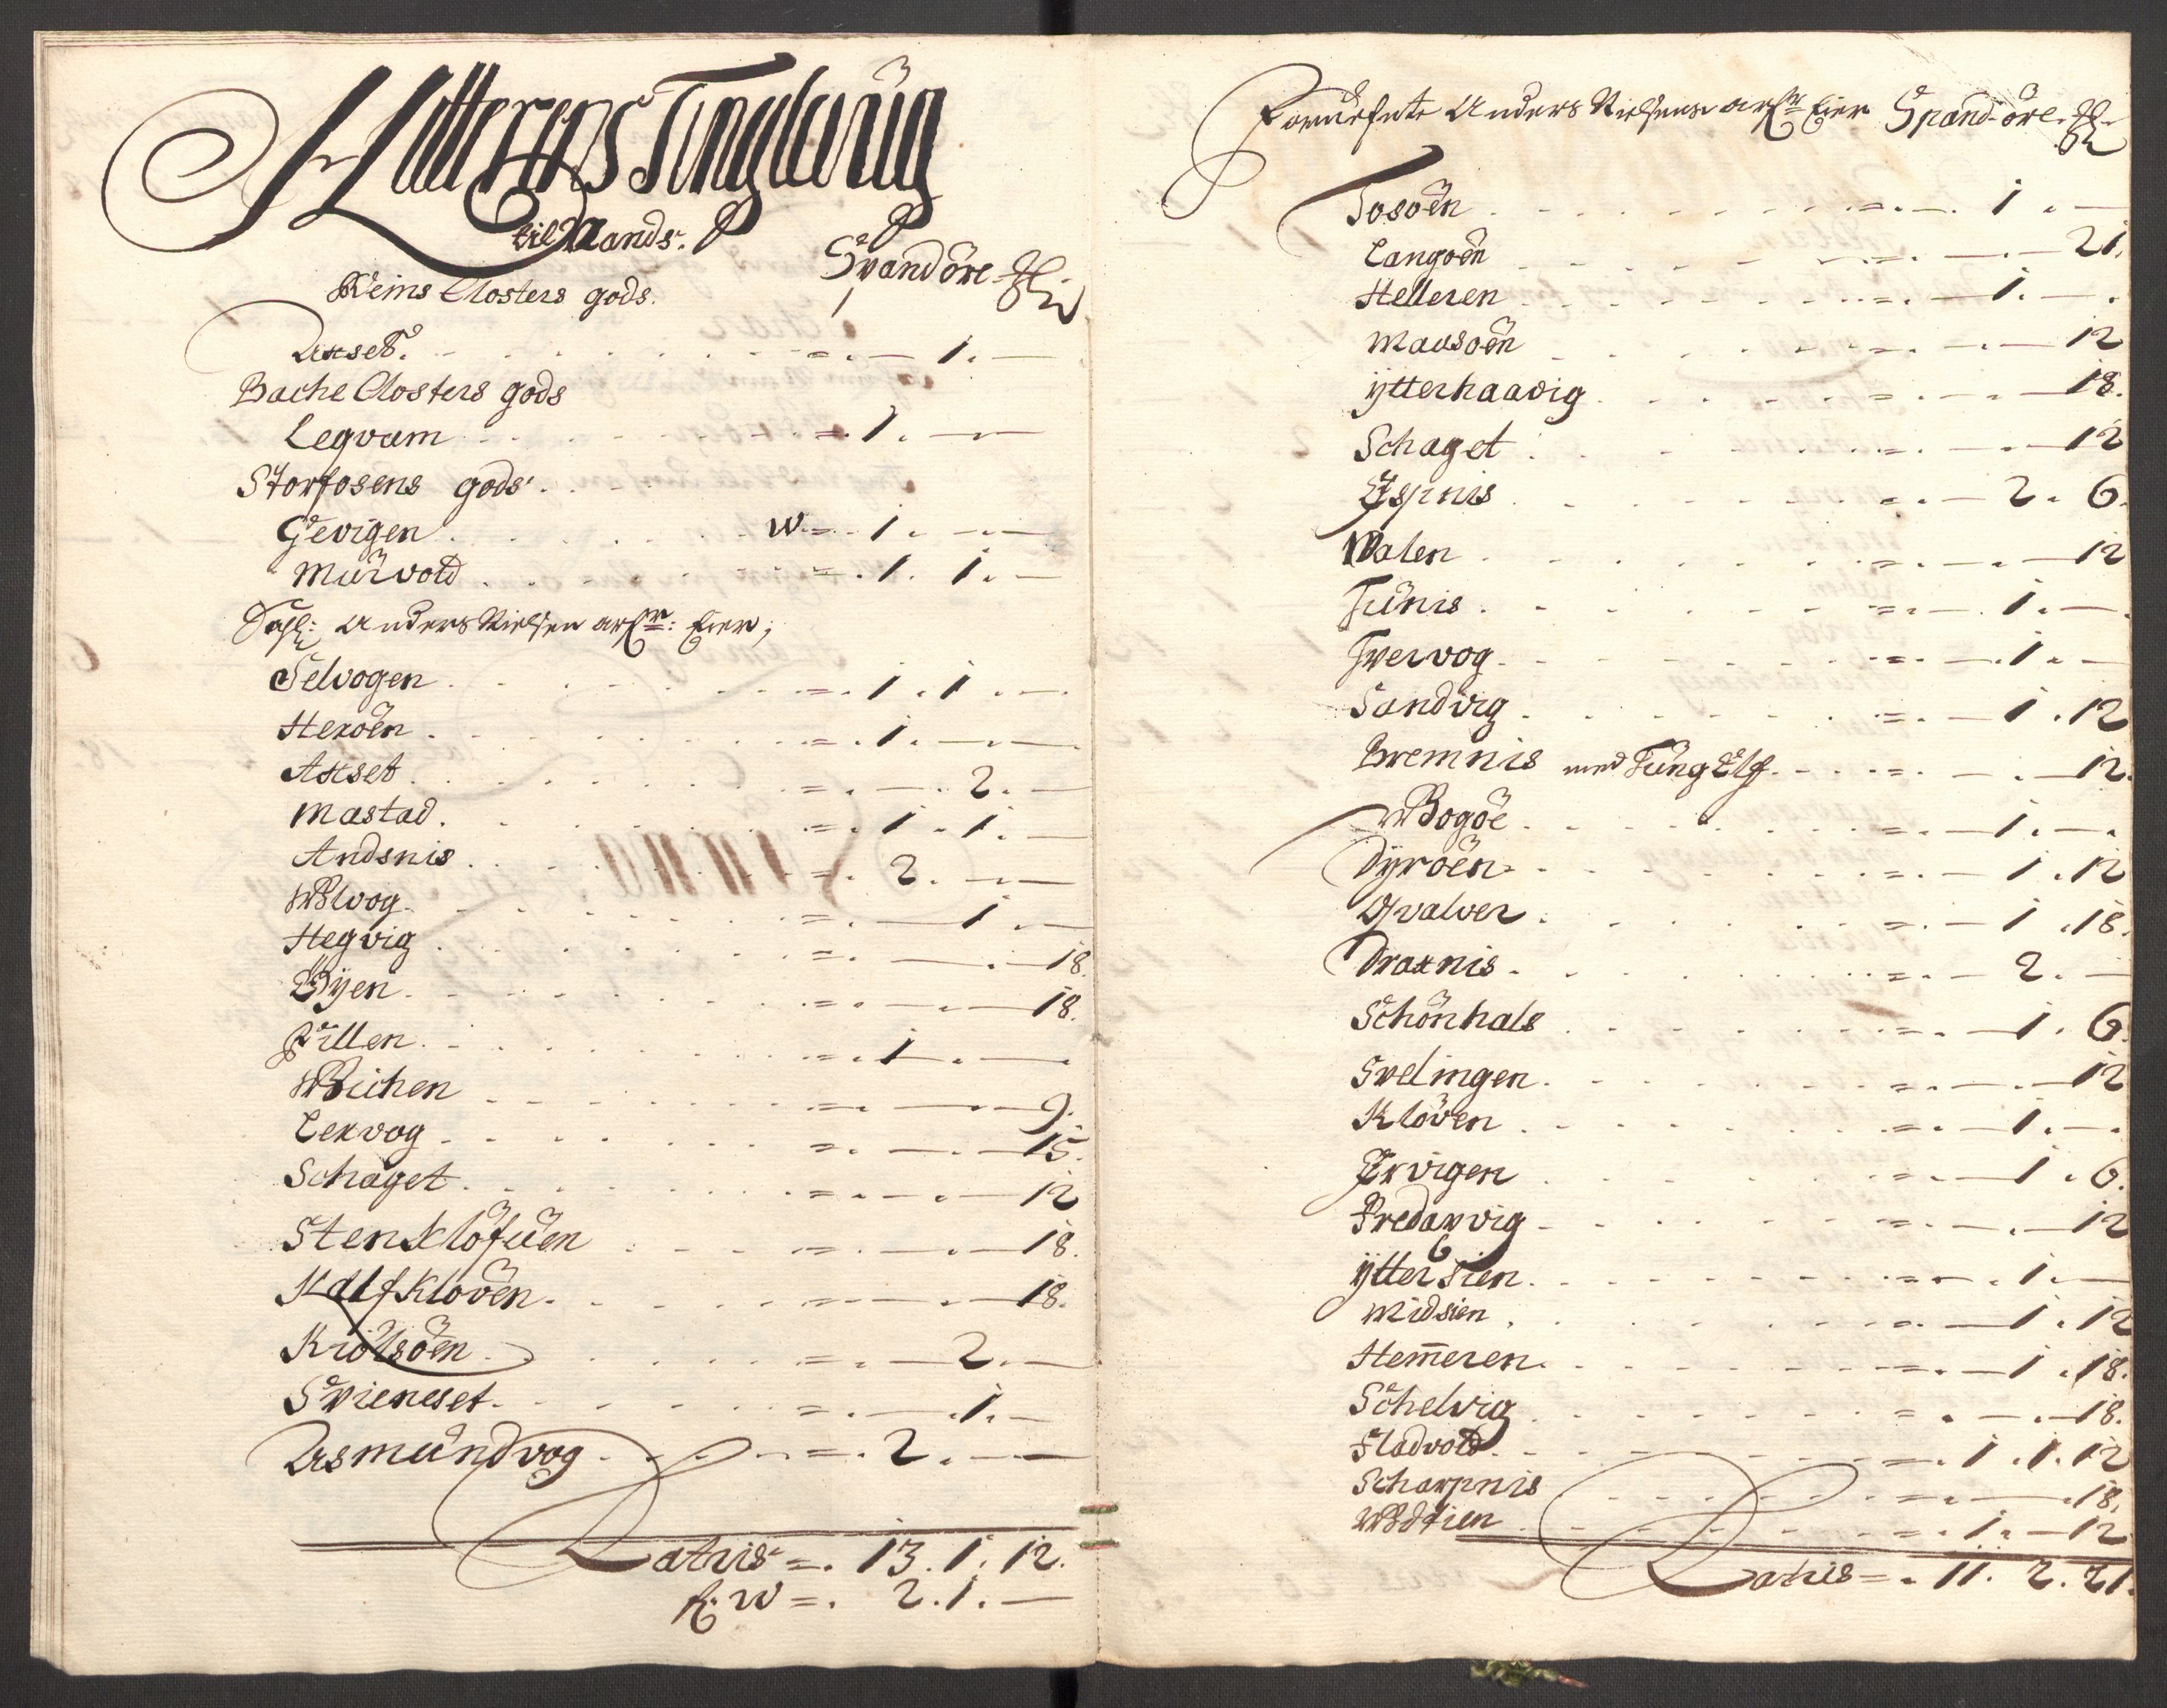 Hitterens Tinglaug
til Mands.
Spand öre
Reins Closters gods.
Axset. - - = . — 1. —
Bache Closters gods
Leqvam - - = . 1. —
Storfosens gods.
Gievigen . . . w = . 1 . —
Murvold . . . = . 1. 1. —
Sahl: Anders Nielsen Eier;
Selvogen . . = . 1 . 1 . —
Hexöen . . = . 1. —
Axset . . = . — . 2. —
Mastad . . = . 1 . 1. —
Andsnis . . = . 2. —
Ulvog . . = . — 1 . —
Hegvig . . = . — . 18.
Øyen . . = . — . 18.
Fillen . . = . 1 . —
Uichen . . = . — 9.
Lexvog . . = . — . 15.
Schaget . . = . — . 12
Stenklöfuen . . = . — . 18.
Kalfklöven . . = — . 18.
Kiölsöen . . = . — 2. —
Svieneset . . = . — . 1. —
Asmundvog . . = . 2 . —
Latris = . 13. 1. 12.
R: W = . 2. 1. —
Foruefnte Anders Nielsens Eier Spand öre
Tosöen . . = . — . 1 . —
Langöen . . = . — . — 21.
Helleren . . = . — 1. — .
Mausöen . . = . — . — 12
ÿtterhaavig . . = . — . — 18.
Schaget . . = . — . — 12
Espnis . . = . — 2 . 6.
Walen . . = . — . — 12
Tunis . . = . — . 1 . —
Tvervog . . = . — . 1 . —
Sandvig . . = . — 1 . 12
Bremnis med Tung Elf . . = . — . — 12.
Bogöe . . = . — 1 . — .
Dyröen . . = . — 1 . 12
Qvalver . . = . — 1 . 18.
Draxnis . . = . — 2 . —
Schönhals . . = . — 1 . 6.
Svelingen . . = . — . — 12
Klöven . . = . — 1 . — .
Ervigen . . = . — 1 . 6.
Fredaxvig . . = . — . 12
ÿtter Sien . . = . 1. —
Midsien . . = . — 1 . 12
Hem̄eren . . = . — 1 . 18.
Schelvig . . = . — . 18.
Fladvold . . = . 1 . 1. 12
Scharpnis . . = . — . 18.
Udtien . . = . 1 . — 12
Latris = . 11. 2. 21.